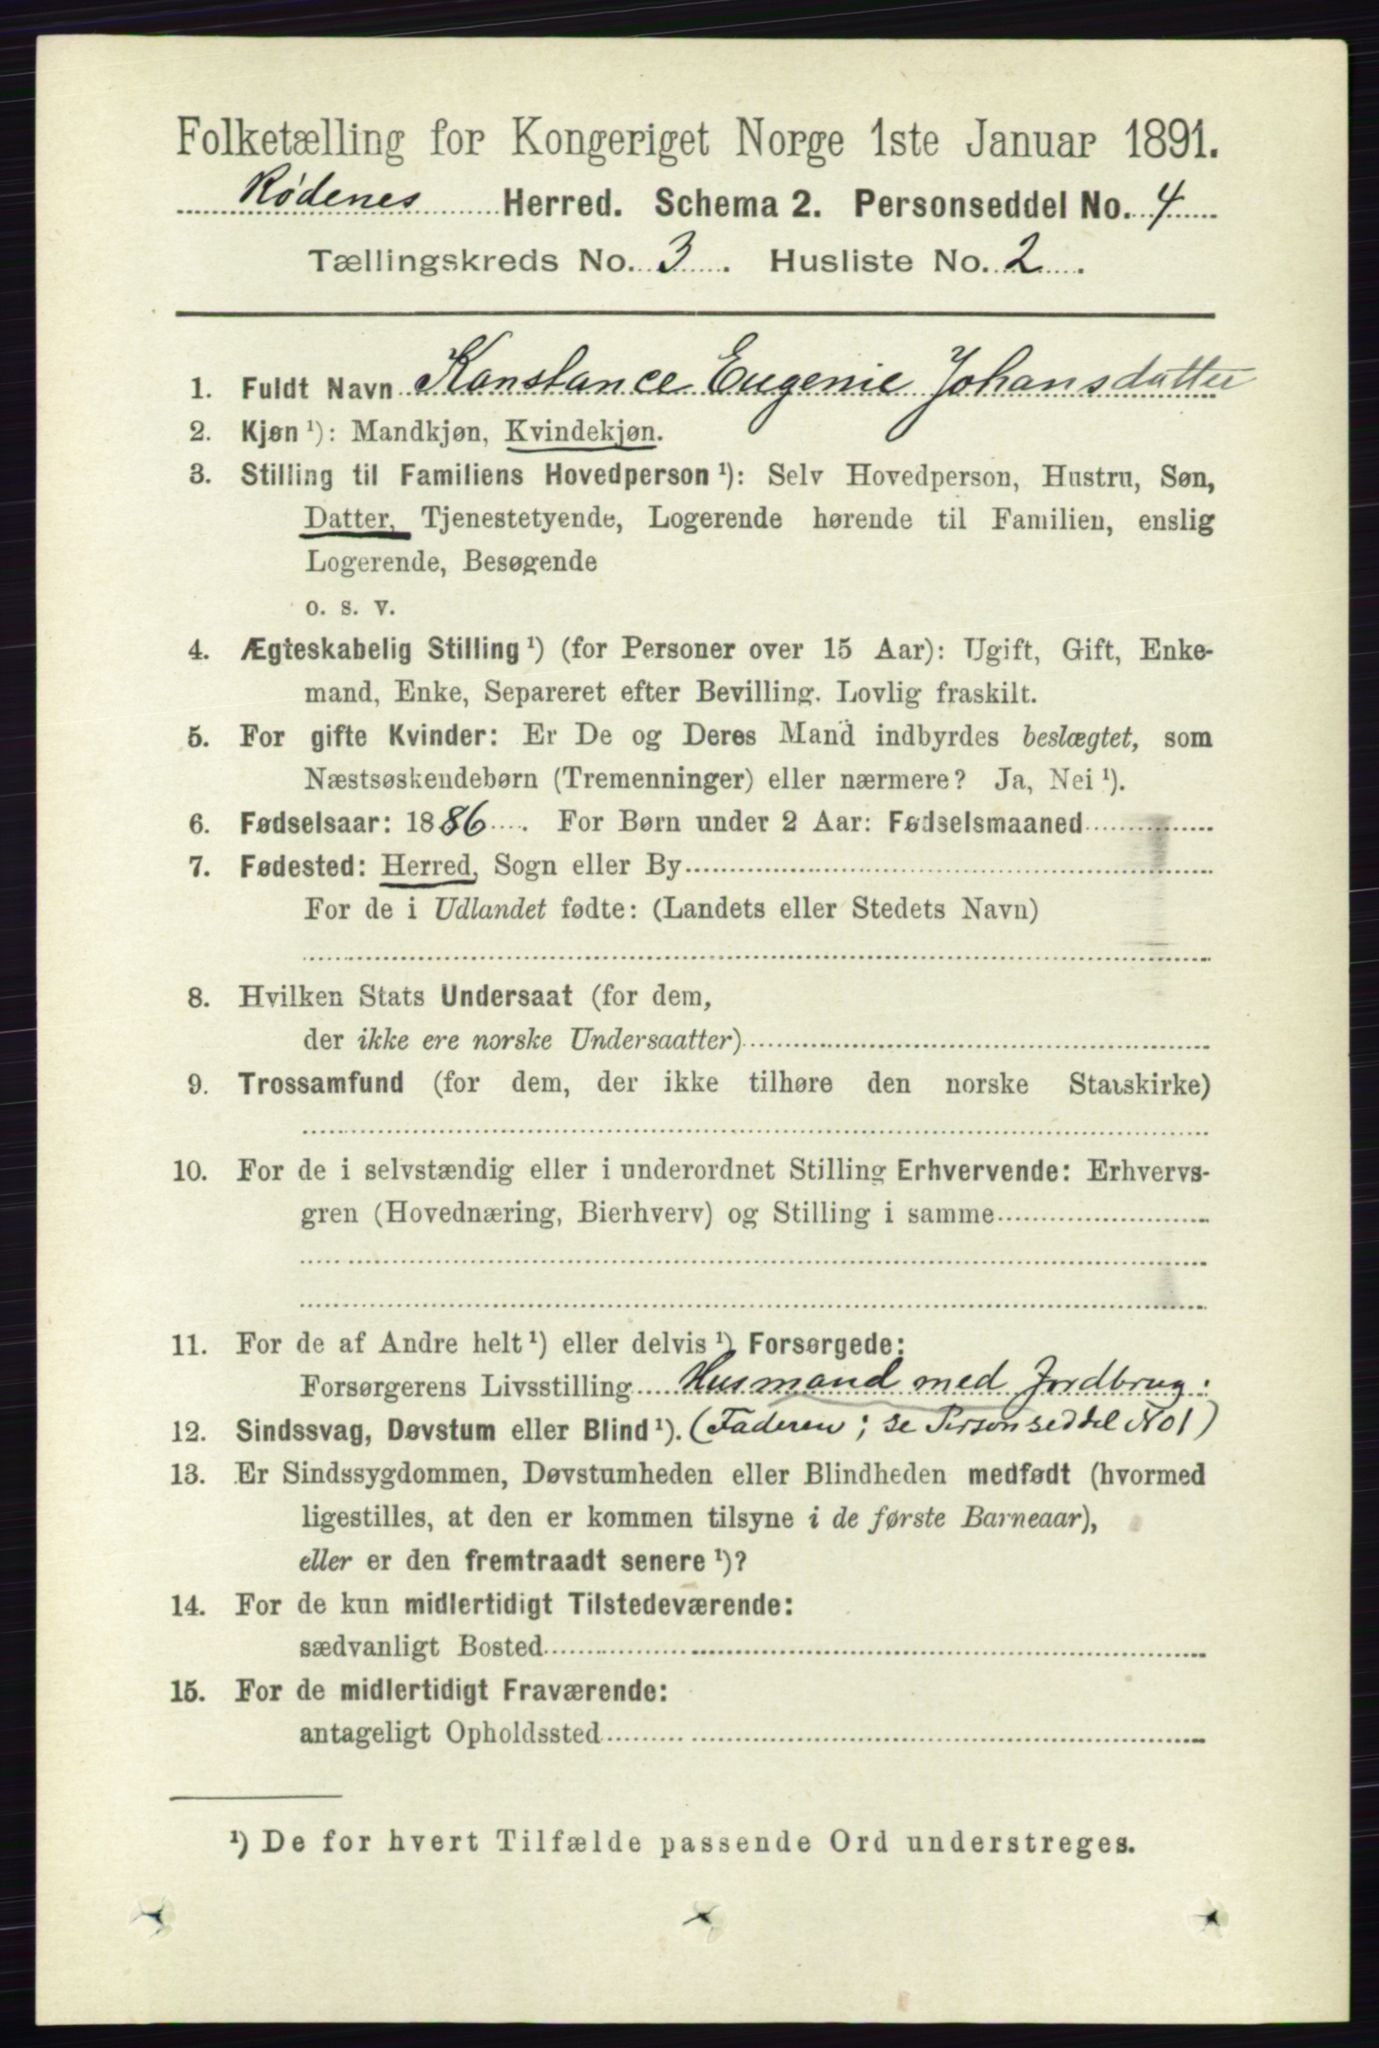 Folketælling for Kongeriget Norge 1ste Januar 1891.
Rødenes Herred. Schema 2. Personseddel No. 4
Tællingskreds No. 3. Husliste No. 2.
1. Fuldt Navn Konstance Eugenie Johansdatter
2. Kjøn ¹): Mandkjøn, Kvindekjøn.
3. Stilling til Familiens Hovedperson ¹): Selv Hovedperson, Hustru, Søn,
Datter, Tjenestetyende, Logerende hørende til Familien, enslig
Logerende, Besøgende
o. s. v.
4. Ægteskabelig Stilling ¹) (for Personer over 15 Aar): Ugift, Gift, Enke-
mand, Enke, Separeret efter Bevilling. Lovlig fraskilt.
5. For gifte Kvinder: Er De og Deres Mand indbyrdes beslægtet, som
Næstsøskendebørn (Tremenninger) eller nærmere? Ja, Nei ¹).
6. Fødselsaar: 1886. For Børn under 2 Aar: Fødselsmaaned
7. Fødested: Herred, Sogn eller By
For de i Udlandet fødte: (Landets eller Stedets Navn)
8. Hvilken Stats Undersaat (for dem,
der ikke ere norske Undersaatter)
9. Trossamfund (for dem, der ikke tilhøre den norske Statskirke)
10. For de i selvstændig eller i underordnet Stilling Erhvervende: Erhvervs-
gren (Hovednæring, Bierhverv) og Stilling i samme
11. For de af Andre helt ¹) eller delvis ¹) Forsørgede:
Forsørgerens Livsstilling Husmand med Jordbrug:
12. Sindssvag, Døvstum eller Blind ¹). (Faderen; se Personseddel No 1)
13. Er Sindssygdommen, Døvstumheden eller Blindheden medfødt (hvormed
ligestilles, at den er kommen tilsyne i de første Barneaar),
eller er den fremtraadt senere ¹)?
14. For de kun midlertidigt Tilstedeværende:
sædvanligt Bosted
15. For de midlertidigt Fraværende:
antageligt Opholdssted
¹) De for hvert Tilfælde passende Ord understreges.